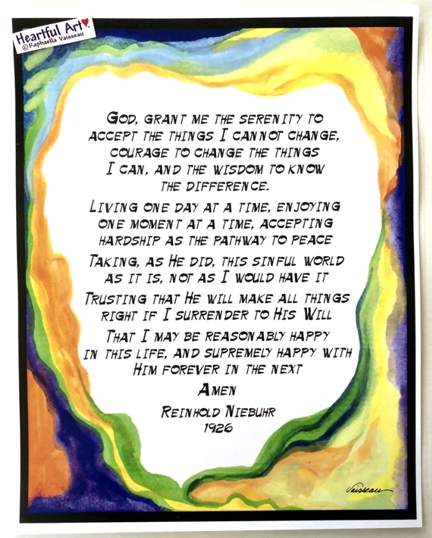 Heartful Art
© Raphaella Vaisseau
GOD, GRANT ME THE SERENITY TO
ACCEPT THE THINGS I CANNOT CHANGE,
COURAGE TO CHANGE THE THINGS
I CAN, AND THE WISDOM TO KNOW
THE DIFFERENCE.
LIVING ONE DAY AT A TIME, ENJOYING
ONE MOMENT AT A TIME, ACCEPTING
HARDSHIP AS THE PATHWAY TO PEACE
TAKING, AS HE DID, THIS SINFUL WORLD
AS IT IS, NOT AS I WOULD HAVE IT
TRUSTING THAT HE WILL MAKE ALL THINGS
RIGHT IF I SURRENDER TO HIS WILL
THAT I MAY BE REASONABLY HAPPY
IN THIS LIFE, AND SUPREMELY HAPPY WITH
HIM FOREVER IN THE NEXT
AMEN
REINHOLD NIEBUHR
1926
Vaisseau